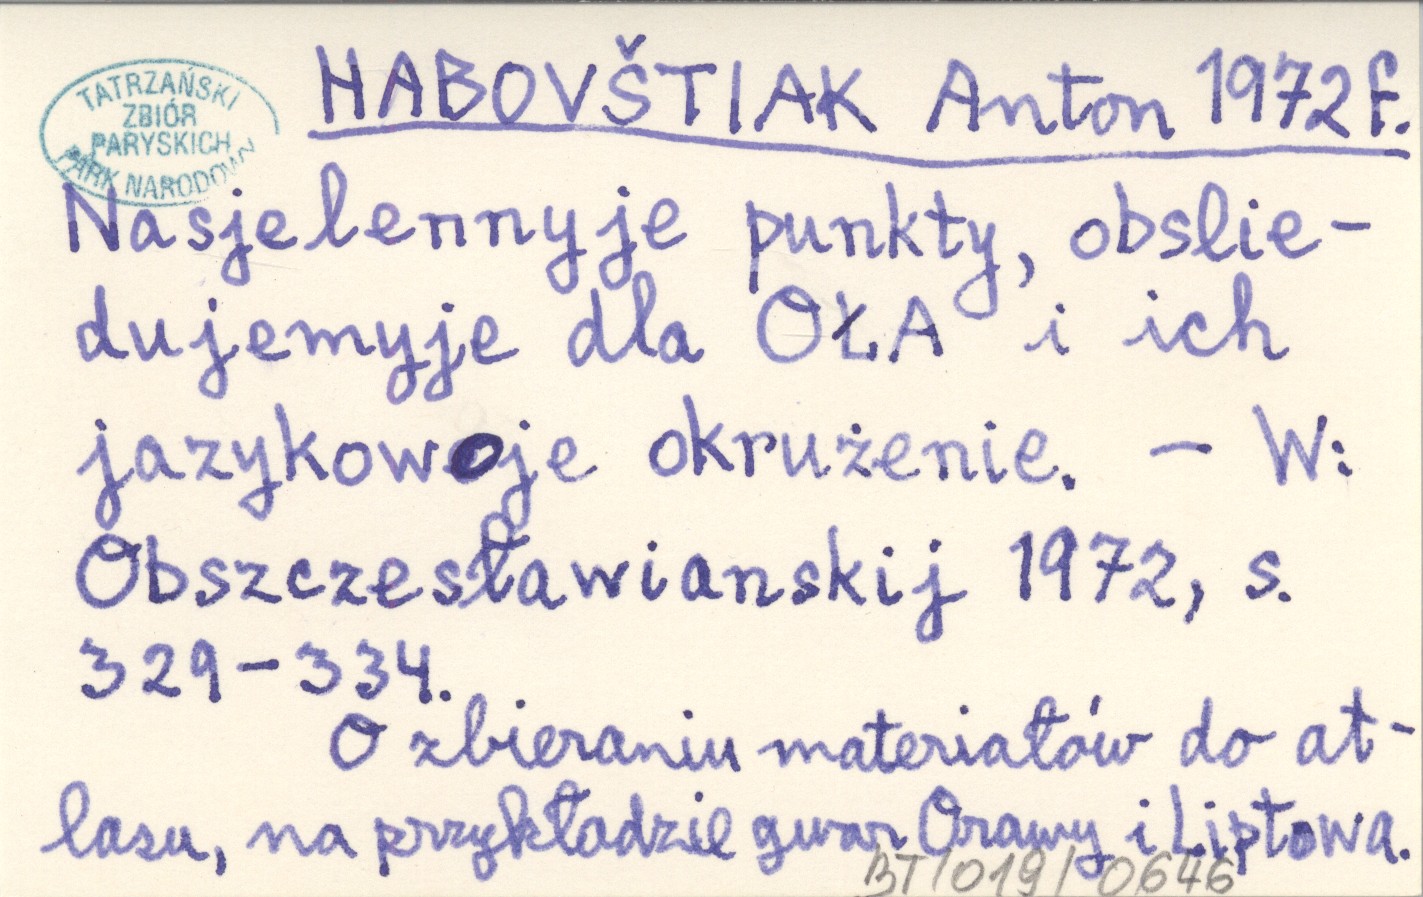 TATRZAŃSKI
ZBIÓR
PARYSKICH
PARK NARODOWY
HABOVŠTIAK Anton 1972 f.
Nasjelennyje punkty, obslie-
dujemyje dla OŁA i ich
jazykowoje okrużenie. - W:
Obszczesławianskij 1972, s.
329-334.
O zbieraniu materiałów do at-
lasu, na przykładzie gwar Orawy i Liptowa.
BT/019/0646